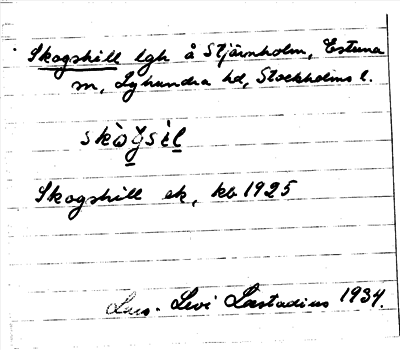 Skogshill lgh å Stjärnholm, Estuna
sn, Lyhundra hd, Stockholms l.
skògsìl
Skogshill ek, kb 1925
Lars-Levi Læstadius 1934.